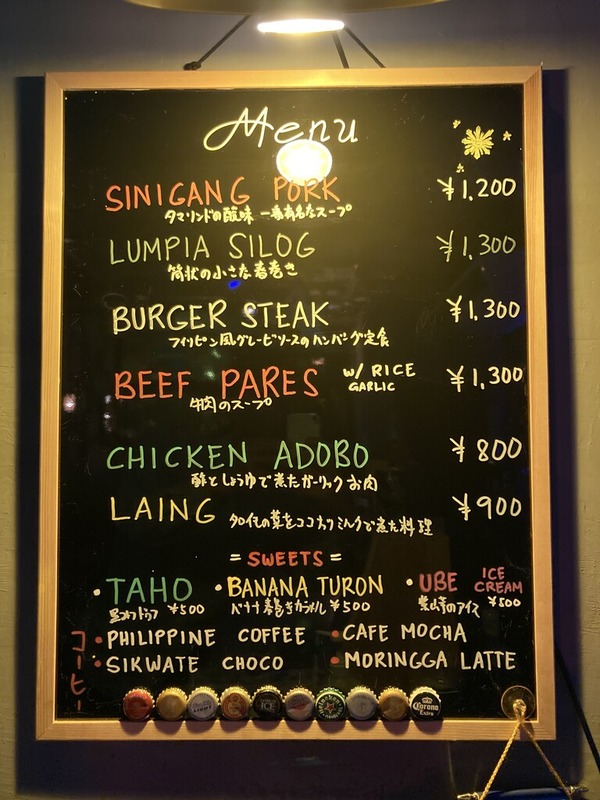 Menu
SINIGANG PORK ¥1,200
タマリンドの酸味 一番有名なスープ
LUMPIA SILOG ¥1,300
筒状の小さな春巻き
BURGER STEAK ¥1,300
フィリピン風グレービーソースのハンバーグ定食
BEEF PARES W/ RICE ¥1,300
GARLIC
牛肉のスープ
CHICKEN ADOBO ¥800
酢としょうゆで煮たガーリックお肉
LAING ¥900
タロイモの葉をココナッツミルクで煮た料理
=SWEETS=
•TAHO •BANANA TURON •UBE ICE CREAM
¥500 バナナ春巻きカラメル ¥500 紫山芋のアイス ¥500
コーヒー
•PHILIPPINE COFFEE •CAFE MOCHA
•SIKWATE CHOCO •MORINGGA LATTE
LIGHT ICE Corona Extra